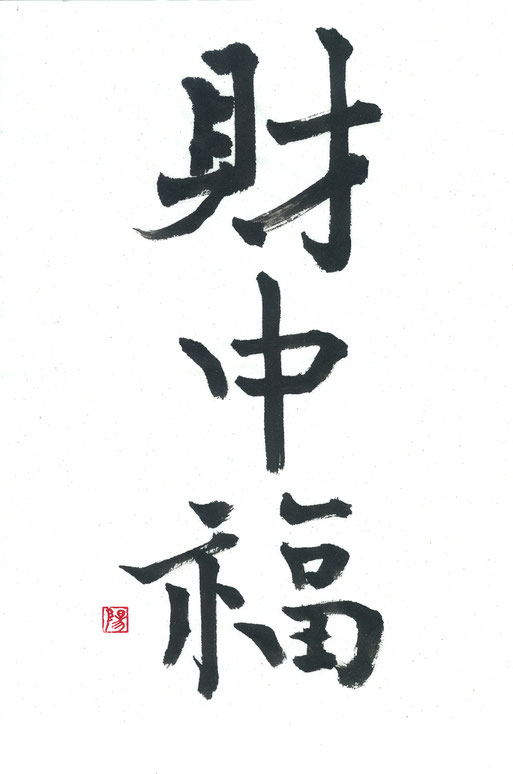 財中福
陽